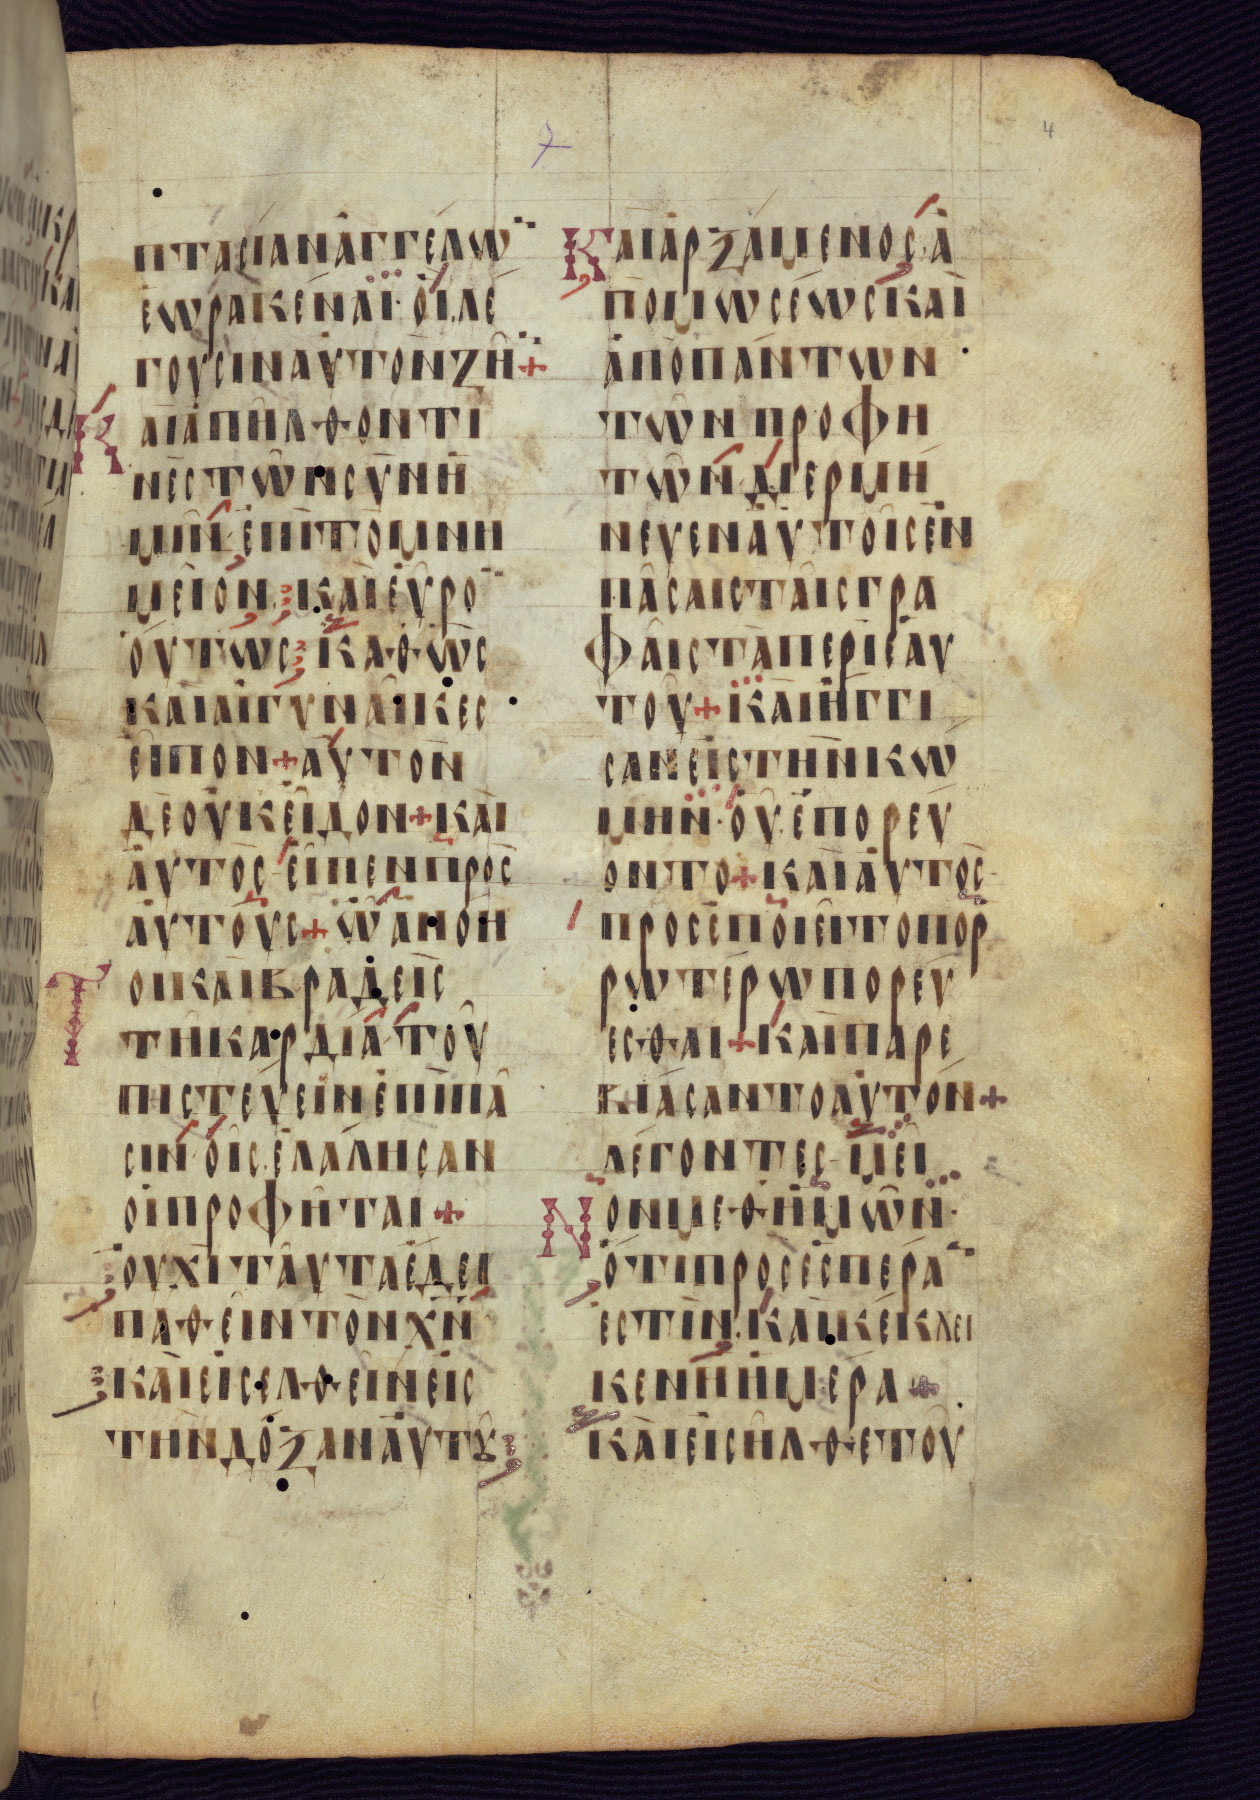 7
4
ΠΤΑΣΙΑΝ ἈΓΓΕΛΩ̄
ἙΩΡΑΚΕΝΑΪ· ΟἹ ΛΕ
ΓΟΥΣΙΝ ΑΥΤῸΝ ΖΗ͂Ν +
ΚΑΙ ἈΠΗΛΘΟΝ ΤΙ
ΝΕΣ ΤΩ͂Ν ΣΥΝ Ἡ
ΜΙΝ ἘΠΙ ΤΟ ΜΝΗ
ΜΕΙΟΝ· ΚΑΙ ΕΥΡΟ̄
ΟΥΤΩΣ ΚΑΘΩΣ
ΚΑΙ ΑΙ ΓΥΝΑΙΚΕΣ
ΕΙΠΟΝ + ΑΥΤΟΝ
ΔΕ ΟΥΚ ΕΙΔΟΝ + ΚΑΙ
ΑΥΤΟΣ ΕΙΠΕΝ ΠΡΟΣ
ΑΥΤΟΥΣ + Ω ΑΝΟΗ
ΤΟΙ ΚΑΙ ΒΡΑΔΕΙΣ
ΤΗ ΚΑΡΔΙΑ ΤΟΥ
ΠΙΣΤΕΥΕΙΝ ΕΠΙ ΠΑ
ΣΙΝ· ΟΙΣ ΕΛΑΛΗΣΑΝ
ΟΙ ΠΡΟΦΗΤΑΙ +
ΟΥΧΙ ΤΑΥΤΑ ΕΔΕΙ
ΠΑΘΕΙΝ ΤΟΝ ΧΝ
ΚΑΙ ΕΙΣΕΛΘΕΙΝ ΕΙΣ
ΤΗΝ ΔΟΞΑΝ ΑΥΤȢ
ΚΑΙ ΑΡΞΑΜΕΝΟΣ Α
ΠΟ ΜΩΣΕΩΣ ΚΑΙ
ΑΠΟ ΠΑΝΤΩΝ
ΤΩΝ ΠΡΟΦΗ
ΤΩΝ· ΔΙΕΡΜΗ
ΝΕΥΕΝ ΑΥΤΟΙΣ ΕΝ
ΠΑΣΑΙΣ ΤΑΙΣ ΓΡΑ
ΦΑΙΣ ΤΑ ΠΕΡΙ ΕΑΥ
ΤΟΥ + ΚΑΙ ΗΓΓΙ
ΣΑΝ ΕΙΣ ΤΗΝ ΚΩ
ΜΗΝ· ΟΥ ΕΠΟΡΕΥ
ΟΝΤΟ + ΚΑΙ ΑΥΤΟΣ
ΠΡΟΣΕΠΟΙΕΙΤΟ ΠΟΡ
ΡΩΤΕΡΩ ΠΟΡΕΥ
ΕΣΘΑΙ + ΚΑΙ ΠΑΡΕ
ΒΙΑΣΑΝΤΟ ΑΥΤΟΝ +
ΛΕΓΟΝΤΕΣ· ΜΕΙ
ΝΟΝ ΜΕΘ ΗΜΩΝ·
ΟΤΙ ΠΡΟΣ ΕΣΠΕΡᾹ
ΕΣΤΙΝ· ΚΑΙ ΚΕΚΛΕΙ
ΚΕΝ Η ΗΜΕΡΑ +
ΚΑΙ ΕΙΣΗΛΘΕ ΤΟΥ